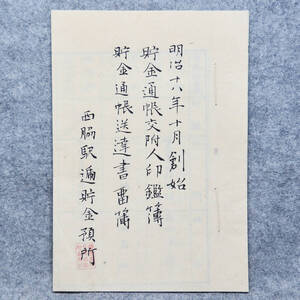 明治十八年十月創始
貯金通帳交附人印鑑簿
貯金通帳送達書留簿
西脇駅逓貯金預所